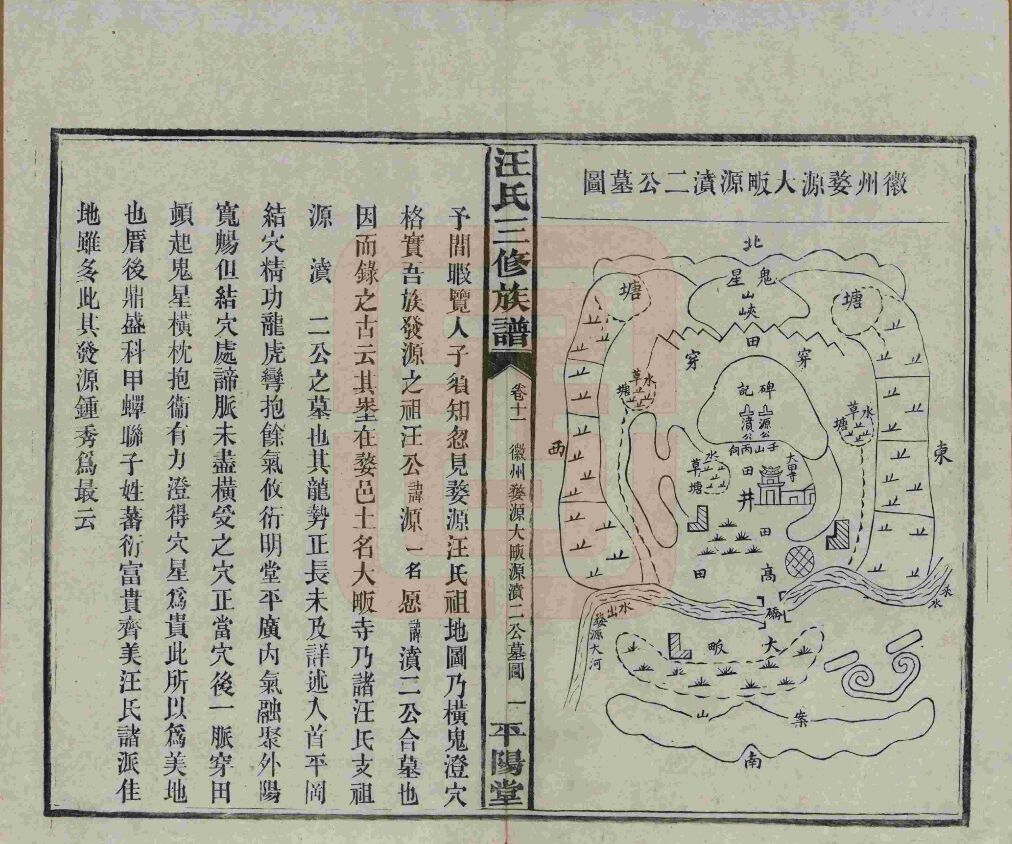 徽州婺源大畈源濆二公墓圖
北
鬼星
山峽
塘
塘
田
穿
穿
水草塘
水草塘
水草塘
碑記
源公
濆公
子山
丙向
田
井
西
東
田
高
田
橋
出水
婺源大河
來水
大畈
案山
南
汪氏三修族譜
卷十一
徽州婺源大畈源濆二公墓圖
一
平陽堂
予閒暇覽人子須知忽見婺源汪氏祖地圖乃橫鬼澄穴
格實吾族發源之祖汪公諱源一名愿諱濆二公合墓也
因而錄之古云其塋在婺邑土名大畈寺乃諸汪氏支祖
源 濆 二公之墓也其龍勢正長未及詳述入首平岡
結穴精功龍虎彎抱餘氣攸衍明堂平廣內氣融聚外陽
寬暢但結穴處諦脈未盡橫受之穴正當穴後一脈穿田
頓起鬼星橫枕抱衞有力澄得穴星爲貴此所以爲美地
也厝後鼎盛科甲蟬聯子姓蕃衍富貴齊美汪氏諸派佳
地雖多此其發源鍾秀爲最云